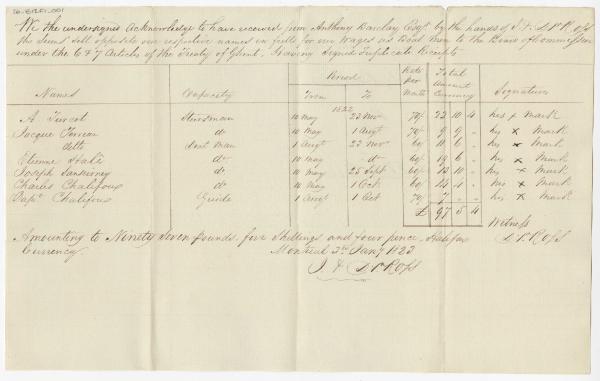 We the undersigned Acknowledge to have received from Anthony Barclay Esqr by the hands of J & D P Ross
the sums sett opposite our respective names in full for our Wages as Boat Men to the Board of Commission
under the 6 & 7 Articles of the Treaty of Ghent, Having Signed Triplicate Receipts
Names Capacity Period Rate Per Month Total Amount Currency Signatures
From To
1822
A Turcot Steersman 10 May 23 Nov 70/ 22 10 4 his x Mark
Jacque Forrean do 10 May 1 Augt 70/ 9 9 - his x Mark
ditto Boat Man 1 Augt 23 Nov 60/ 11 6 - his x Mark
Etienne Hale do 10 May do 60/ 19 6 - his x Mark
Joseph Sansevrey do 10 May 25 Sept 60/ 13 10 - his x Mark
Charles Chalifoux do 10 May 1 Oct 60/ 14 - his x Mark
Bapt Chalifoux Guide 1 Augt 1 Oct 70/ 7 - - his x Mark
£ 97 5 4
Witness
Amounting to Ninety Seven pounds, five Shillings and four pence, Halifax D. P. Ross
Currency. Montreal 3rd Jany 1823
J. & D. P. Ross